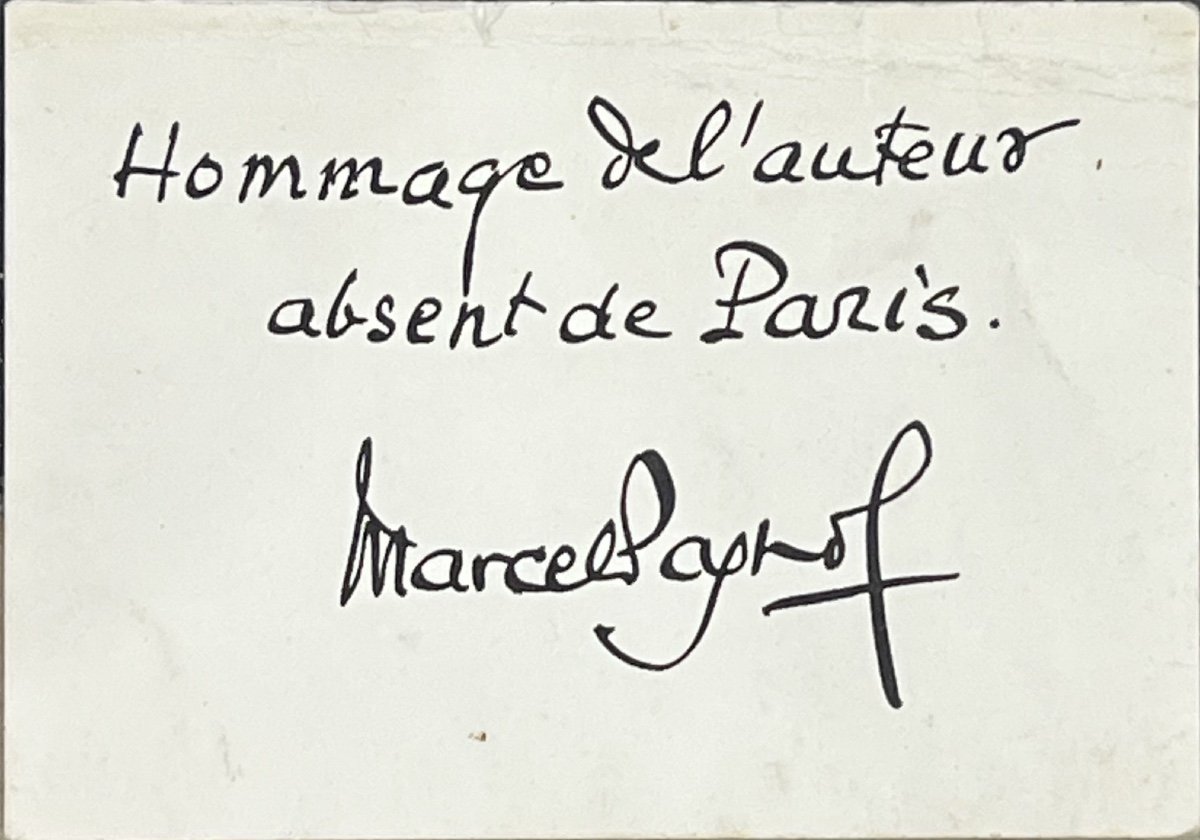 Hommage de l'auteur
absent de Paris.
Marcel Pagnol